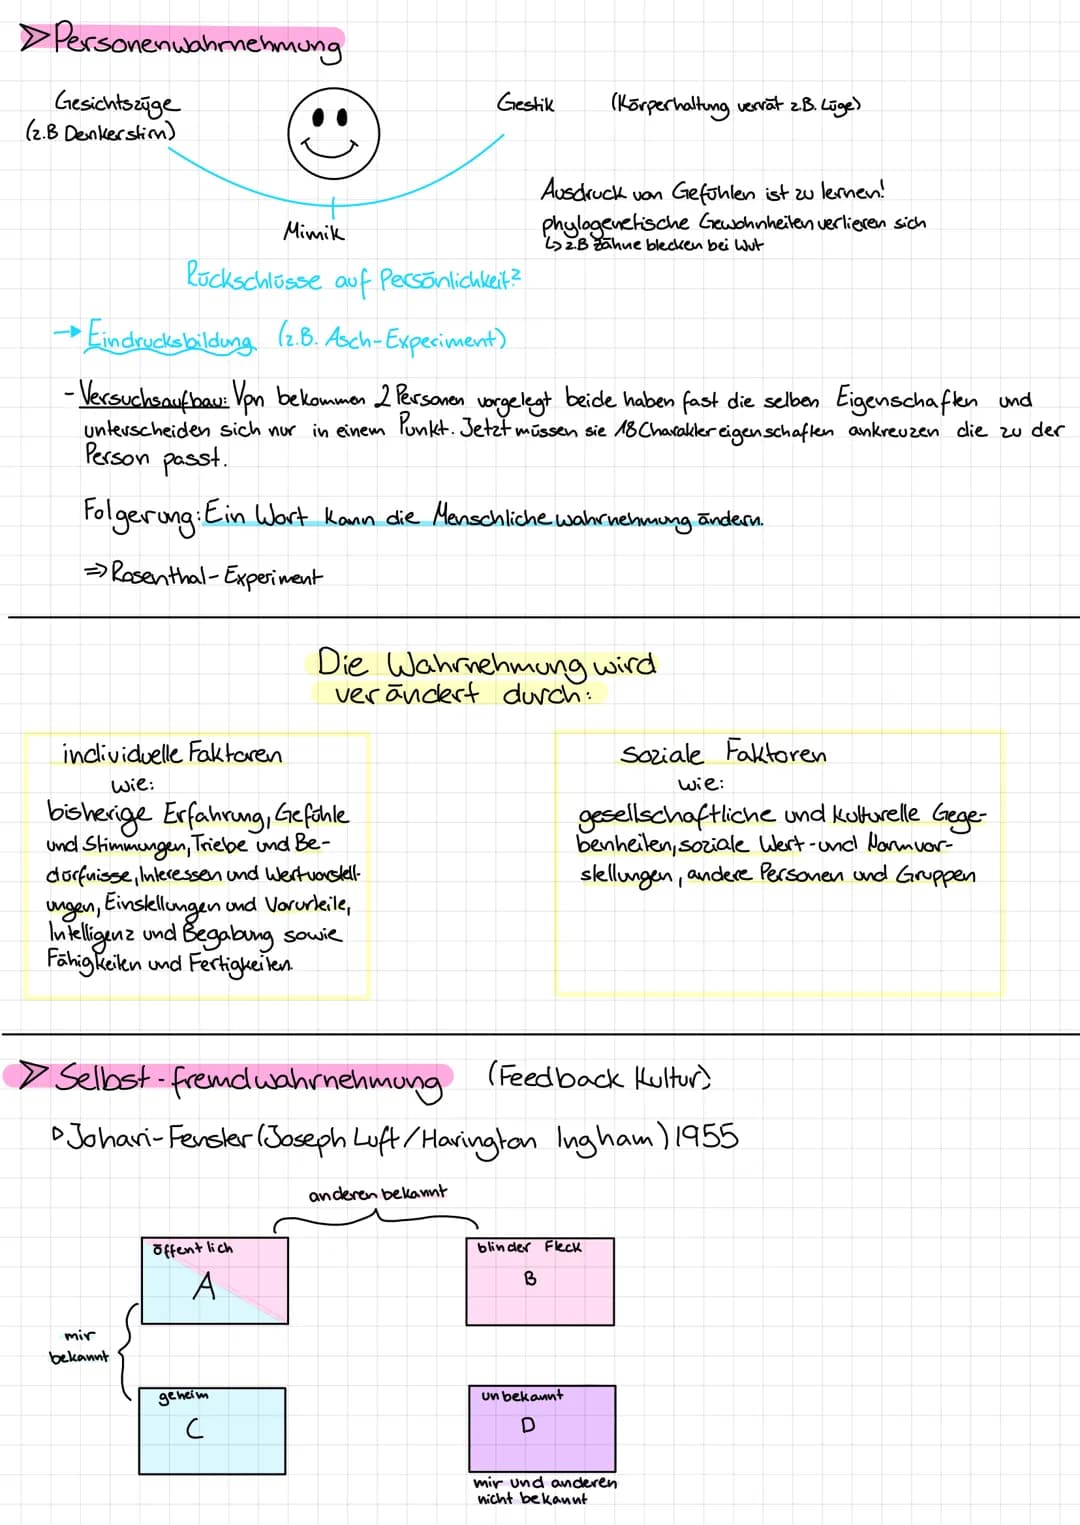 Personenwahrnehmung
Gesichtszüge
(z.B Denkerstirn)
Gestik (Körperhaltung verrät z.B. Lüge)
Mimik
Ausdruck von Gefühlen ist zu lernen!
phylogenetische Gewohnheiten verlieren sich
↳ z.B Zähne blecken bei Wut
Rückschlüsse auf Persönlichkeit?
→ Eindrucksbildung (z.B. Asch-Experiment)
- Versuchsaufbau: Vpn bekommen 2 Personen vorgelegt beide haben fast die selben Eigenschaften und
unterscheiden sich nur in einem Punkt. Jetzt müssen sie 18 Charaktereigenschaften ankreuzen die zu der
Person passt.
Folgerung: Ein Wort kann die Menschliche wahrnehmung ändern.
⇒ Rosenthal-Experiment
Die Wahrnehmung wird
verändert durch:
individuelle Faktoren
wie:
bisherige Erfahrung, Gefühle
und Stimmungen, Triebe und Be-
dürfnisse, Interessen und Wertvorstell-
ungen, Einstellungen und Vorurteile,
Intelligenz und Begabung sowie
Fähigkeiten und Fertigkeiten.
Soziale Faktoren
wie:
gesellschaftliche und kulturelle Gege-
benheiten, soziale Wert-und Normvor-
stellungen, andere Personen und Gruppen
Selbst-fremdwahrnehmung (Feedback Kultur)
Johari-Fenster (Joseph Luft/Harington Ingham) 1955
anderen bekannt
öffentlich
A
blinder Fleck
B
mir
bekannt
geheim
C
unbekannt
D
mir und anderen
nicht bekannt